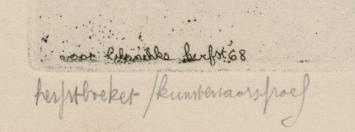 voor herfst '68
herfstboeket / kunstenaarsproef